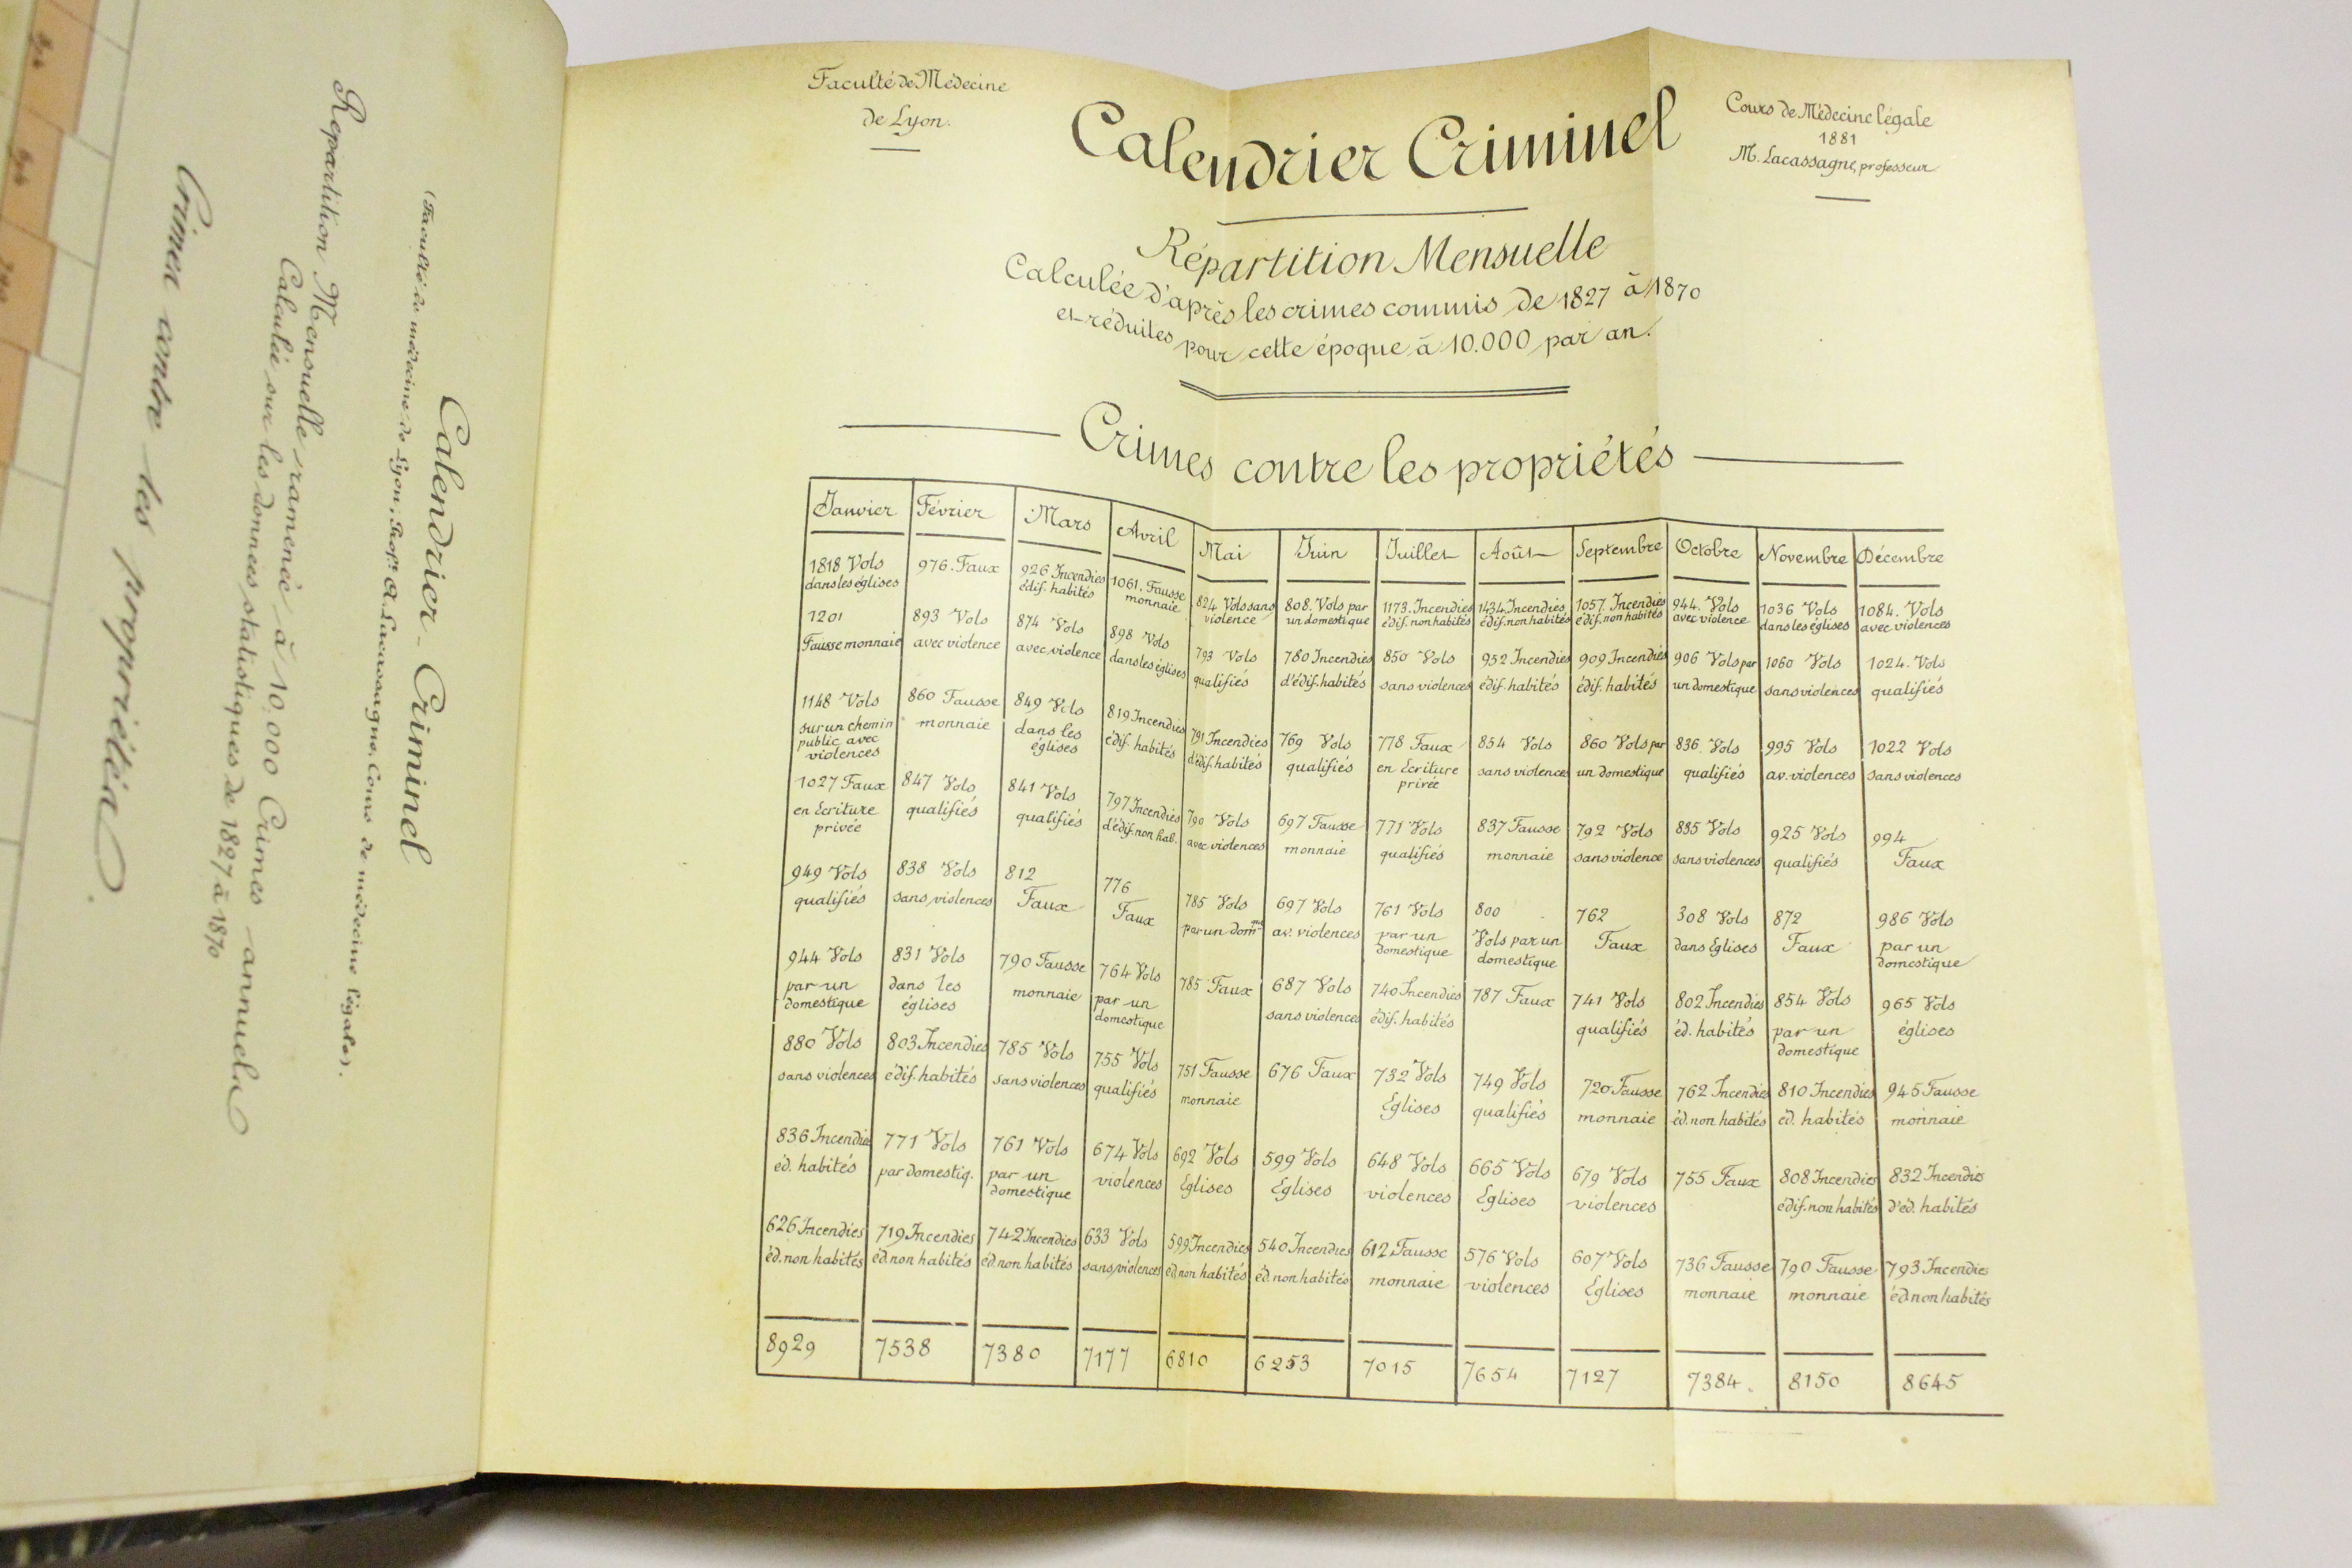 Calendrier - Criminel
(Faculté de médecine de Lyon, Profr A. Lacassagne, Cours de médecine légale).
Repartition Mensuelle ramenée à 10.000 Crimes annuels
Calculée sur les données statistiques de 1827 à 1870
Crimes contre les propriétés.
Faculté de Médecine
de Lyon.
Calendrier Criminel
Cours de Médecine légale
1881
M. Lacassagne, professeur
Répartition Mensuelle
Calculée d'après les crimes commis de 1827 à 1870
et réduites pour cette époque à 10.000 par an.
Crimes contre les propriétés
Janvier
1818 Vols
dans les églises
1201
Fausse monnaie
1148 Vols
sur un chemin
public avec
violences
1027 Faux
en Ecriture
privée
949 Vols
qualifiés
944 Vols
par un
domestique
880 Vols
sans violences
836 Incendies
éd. habités
626 Incendies
éd. non habités
8929
Février
976. Faux
893 Vols
avec violence
860 Fausse
monnaie
847 Vols
qualifiés
838 Vols
sans violences
831 Vols
dans les
églises
803 Incendies
édif. habités
771 Vols
par domestiq.
719 Incendies
éd. non habités
7538
Mars
926 Incendies
édif. habités
874 Vols
avec violence
849 Vols
dans les
églises
841 Vols
qualifiés
812
Faux
790 Fausse
monnaie
785 Vols
sans violences
761 Vols
par un
domestique
742 Incendies
éd. non habités
7380
Avril
1061. Fausse
monnaie
898 Vols
dans les églises
819 Incendies
édif. habités
797 Incendies
d'édif. non hab.
776
Faux
764 Vols
par un
domestique
755 Vols
qualifiés
674 Vols
violences
633 Vols
sans violences
7177
Mai
824 Vols sans
violence
793 Vols
qualifiés
791 Incendies
d'édif. habités
790 Vols
avec violences
785 Vols
par un domque
785 Faux
751 Fausse
monnaie
692 Vols
Eglises
599 Incendies
éd. non habités
6810
Juin
808. Vols par
un domestique
780 Incendies
d'édif. habités
769 Vols
qualifiés
697 Fausse
monnaie
697 Vols
av. violences
687 Vols
sans violences
676 Faux
599 Vols
Eglises
540 Incendies
éd. non habités
6253
Juillet
1173. Incendies
édif. non habités
850 Vols
sans violences
778 Faux
en Ecriture
privée
771 Vols
qualifiés
761 Vols
par un
domestique
740 Incendies
édif. habités
732 Vols
Eglises
648 Vols
violences
612 Fausse
monnaie
7015
Août
1434. Incendies
édif. non habités
952 Incendies
édif. habités
854 Vols
sans violences
837 Fausse
monnaie
800
Vols par un
domestique
787 Faux
749 Vols
qualifiés
665 Vols
Eglises
576 Vols
violences
7654
Septembre
1057. Incendies
édif. non habités
909 Incendies
édif. habités
860 Vols par
un domestique
792 Vols
sans violence
762
Faux
741 Vols
qualifiés
720 Fausse
monnaie
679 Vols
violences
607 Vols
Eglises
7127
Octobre
944. Vols
avec violence
906 Vols par
un domestique
836. Vols
qualifiés
835 Vols
sans violences
308 Vols
dans Eglises
802 Incendies
éd. habités
762 Incendies
éd. non habités
755 Faux
736 Fausse
monnaie
7384.
Novembre
1036 Vols
dans les églises
1060 Vols
sans violences
995 Vols
av. violences
925 Vols
qualifiés
872
Faux
854 Vols
par un
domestique
810 Incendies
éd. habités
808 Incendies
édif. non habités
790 Fausse
monnaie
8150
Décembre
1084. Vols
avec violences
1024. Vols
qualifiés
1022 Vols
sans violences
994
Faux
986 Vols
par un
domestique
965 Vols
églises
945 Fausse
monnaie
832 Incendies
d'éd. habités
793 Incendies
éd. non habités
8645